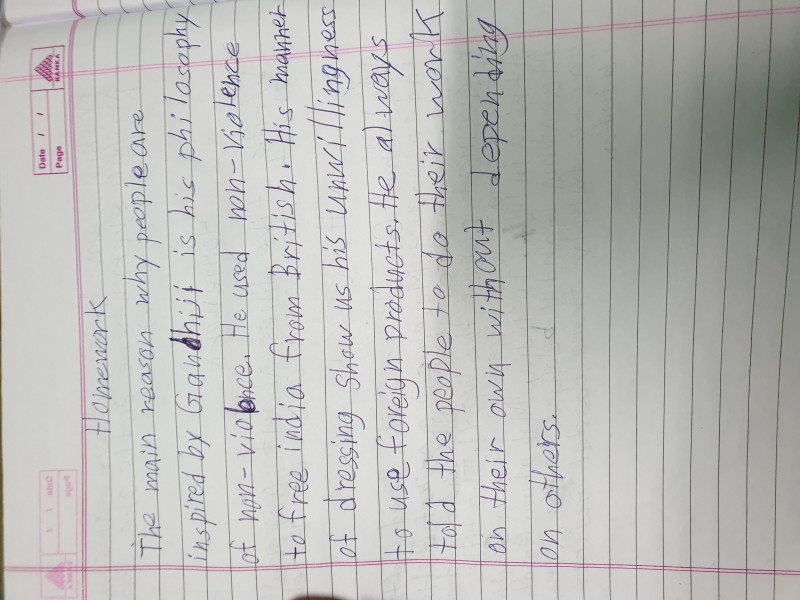 NANKA
Date / /
Page
Homework
The main reason why people are
inspired by Gandhiji is his philosophy
of non-violence. He used non-violence
to free india from British. His manner
of dressing show us his unwillingness
to use foreign products. He always
told the people to do their work
on their own without depending
on others.